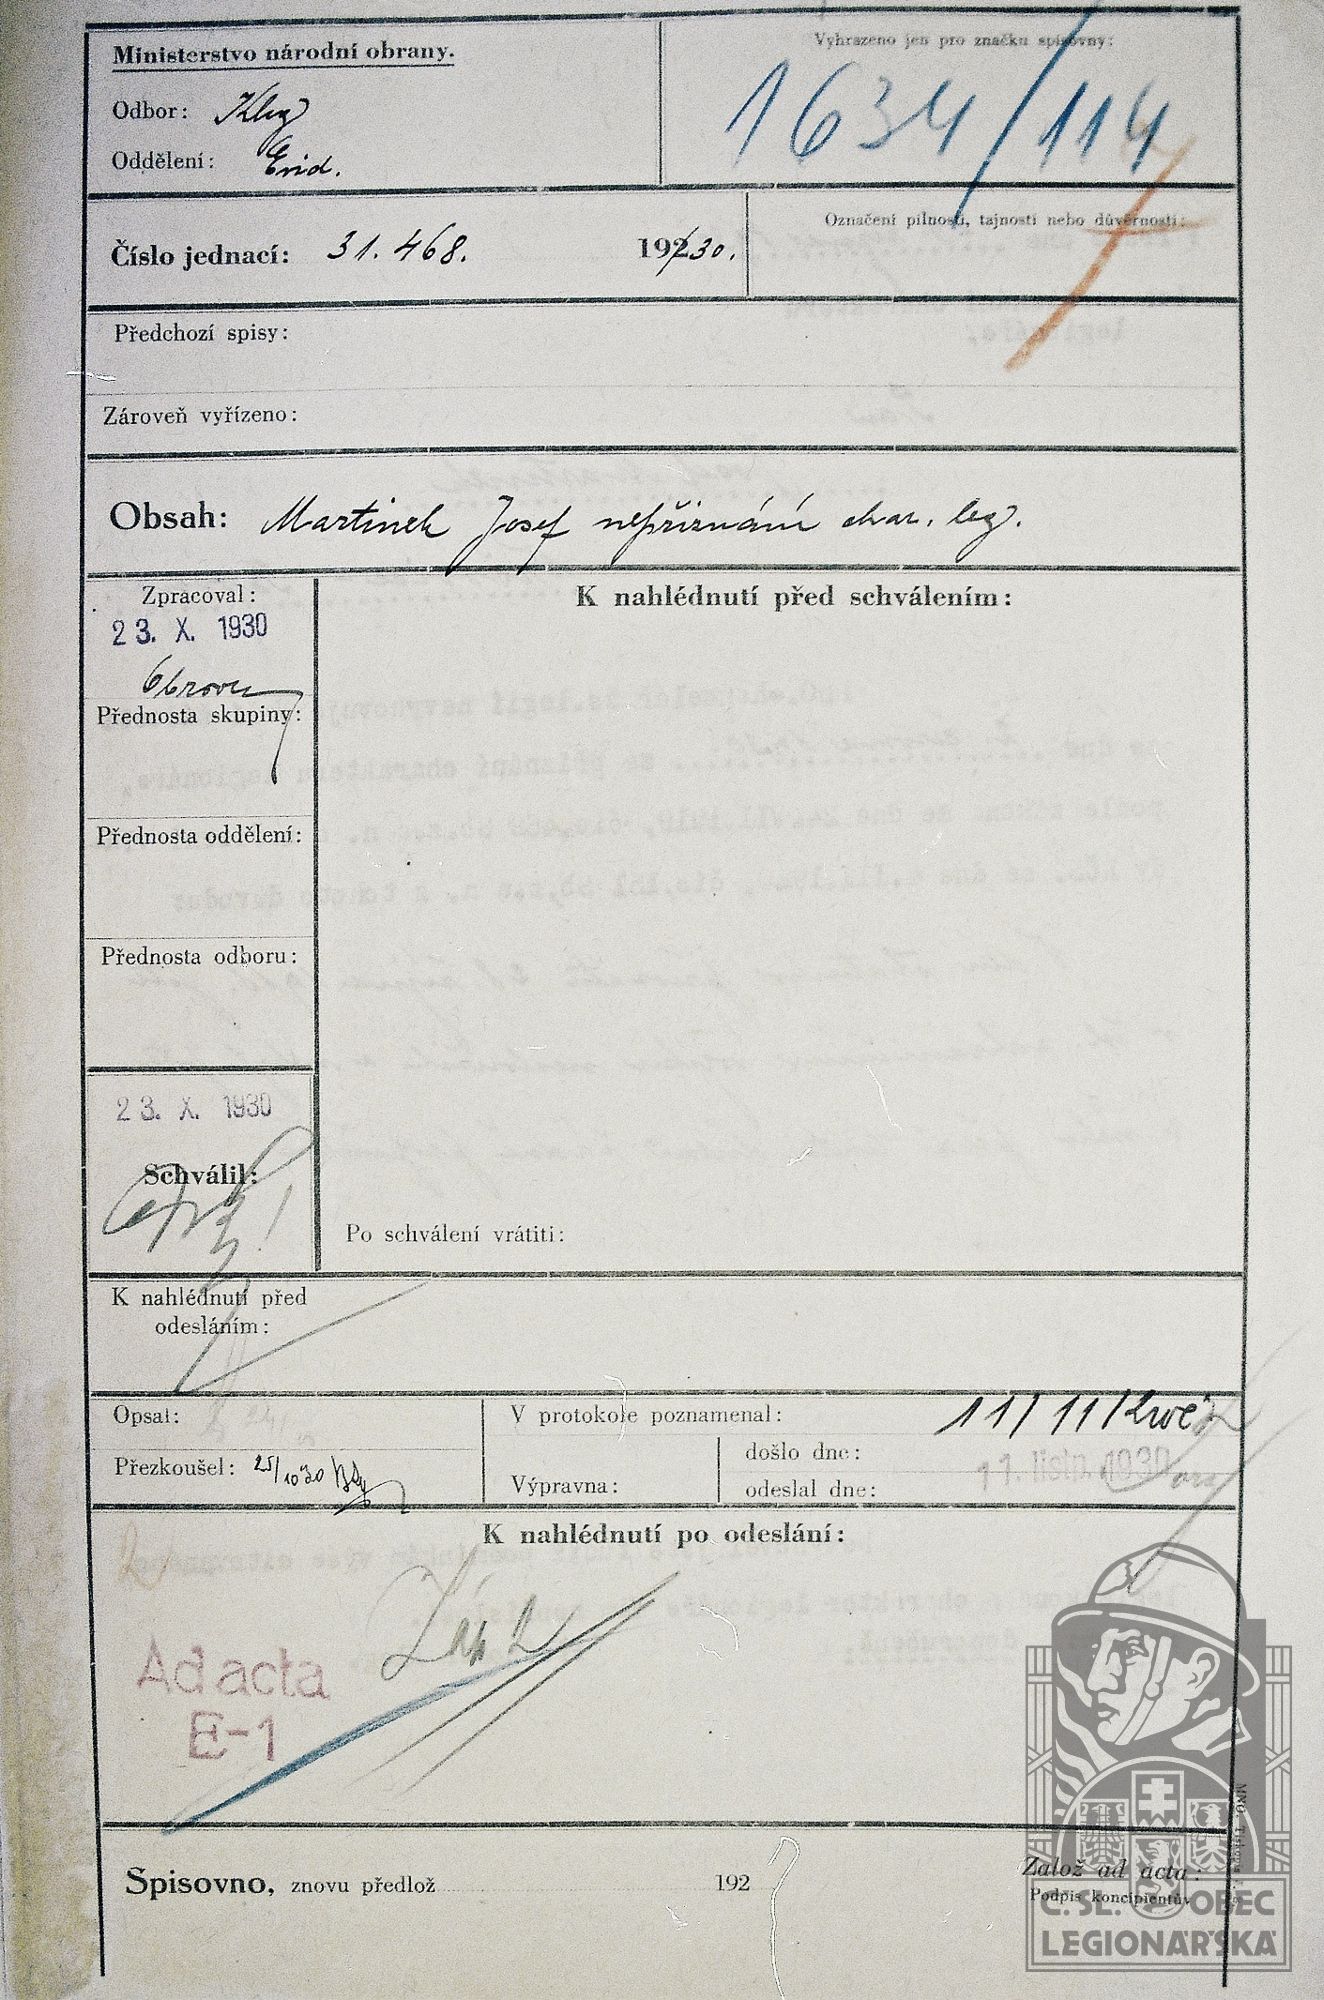 Ministerstvo národní obrany.
Vyhrazeno jen pro značku spisovny:
Odbor:
1634/114
Oddělení: Evid.
Označení pilnosti, tajnosti nebo důvěrnosti:
Číslo jednací: 31.468. 19230.
Předchozí spisy:
Zároveň vyřízeno:
Obsah: Martinek Josef nepřiznání char. leg.
Zpracoval:
K nahlédnutí před schválením:
23. X. 1930
Přednosta skupiny:
Přednosta oddělení:
Přednosta odboru:
23. X. 1930
Schválil:
Po schválení vrátiti:
K nahlédnutí před
odesláním:
Opsal:
V protokole poznamenal: 11/11
Přezkoušel: 25/10 30
došlo dne:
11. listp. 1930
Výpravna:
odeslal dne:
K nahlédnutí po odeslání:
Ad acta
E-1
Spisovno, znovu předlož 192
Založ ad acta:
Podpis koncipientův
Č. SL. OBEC
LEGIONÁŘSKÁ